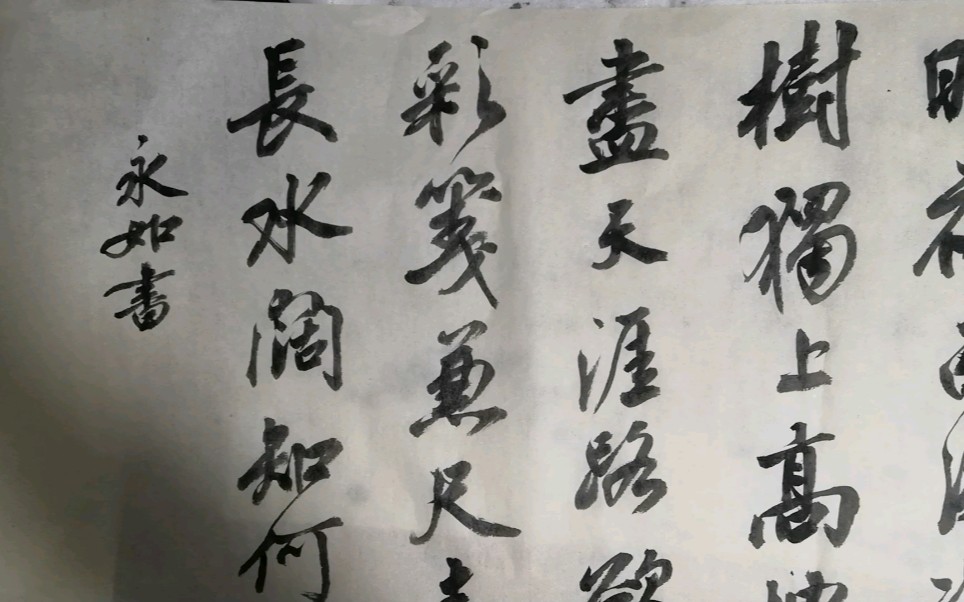 樹獨上高
盡天涯路欲
彩箋兼尺
長水闊知何
永如書